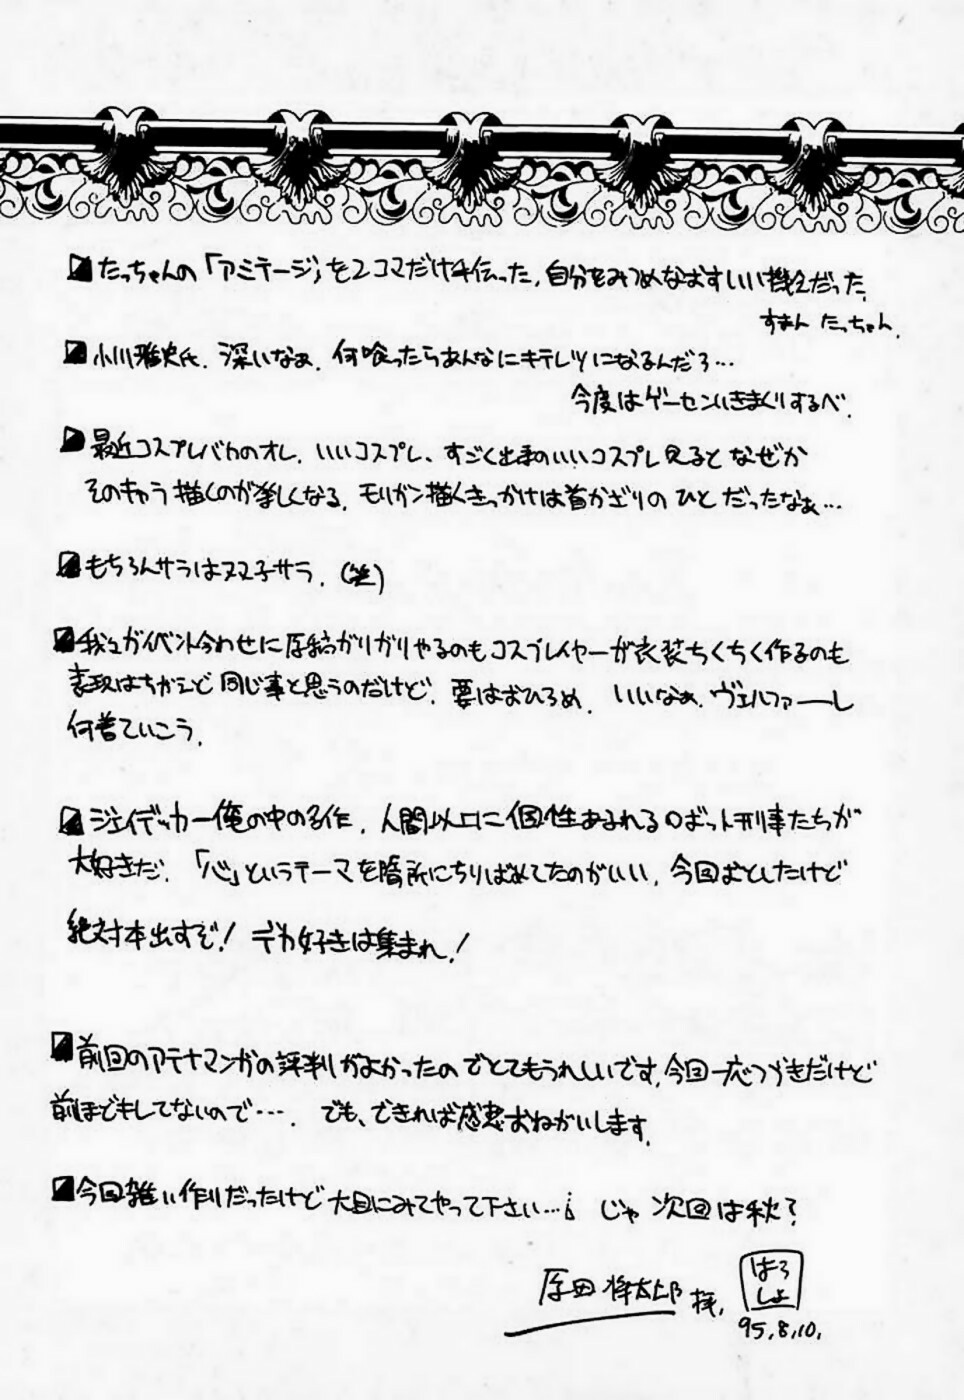 たっちゃんの「アミテージ」を2コマだけ手伝った。自分をみつめなおすいい機会だった。
すまん たっちゃん。
小川雅史氏。深いなぁ。何喰ったらあんなにキテレツになるんだろ…
今度はゲーセンいきまくりするべ。
最近コスプレバカのオレ。いいコスプレ、すごく出来のいいコスプレ見ると なぜか
そのキャラ描くのが楽しくなる。モリガン描くきっかけは首かざりの ひと だったなぁ…
もちろんサラはヌマ子サラ。(笑)
我々がイベント合わせに原稿がりがりやるのもコスプレイヤーが衣装ちくちく作るのも
表現はちがえど 同じ事と思うのだけど。要はおひろめ。いいなぁ。ヴェルファーレ
何着ていこう。
ジェイデッカー俺の中の名作。人間以上に個性あふれるロボット刑事たちが
大好きだ。「心」というテーマを随所にちりばめてたのがいい。今回おとしたけど
絶対本出すぞ! デカ好きは集まれ!
前回のアテナマンガの評判がよかったのでとてもうれしいです。今回一応つづきだけど
前ほどキしてないので…。でも、できれば感想おねがいします。
今回雑い作りだったけど 大目にみてやって下さい…。 じゃ 次回は秋?
原田将太郎 拝。
はろ
しょ
95.8.10.